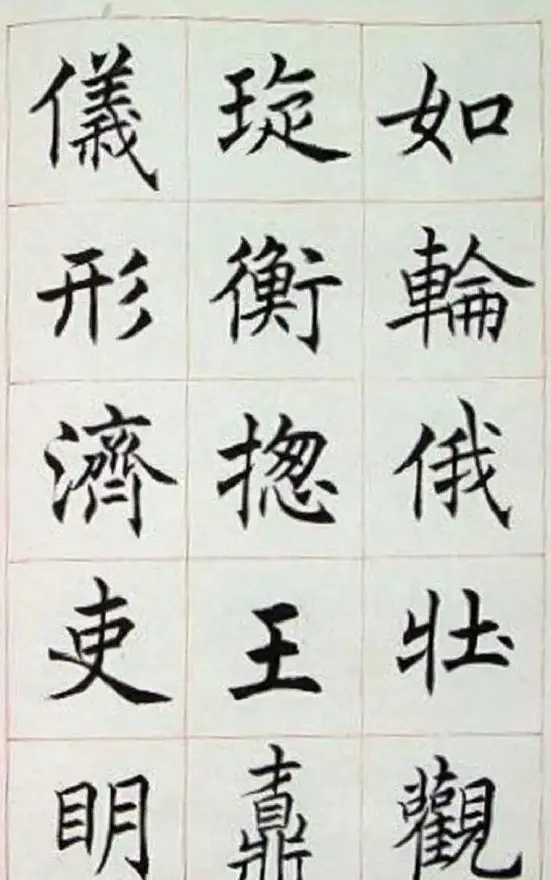 如輪俄壯觀
琁衡揔王
儀形濟吏眀